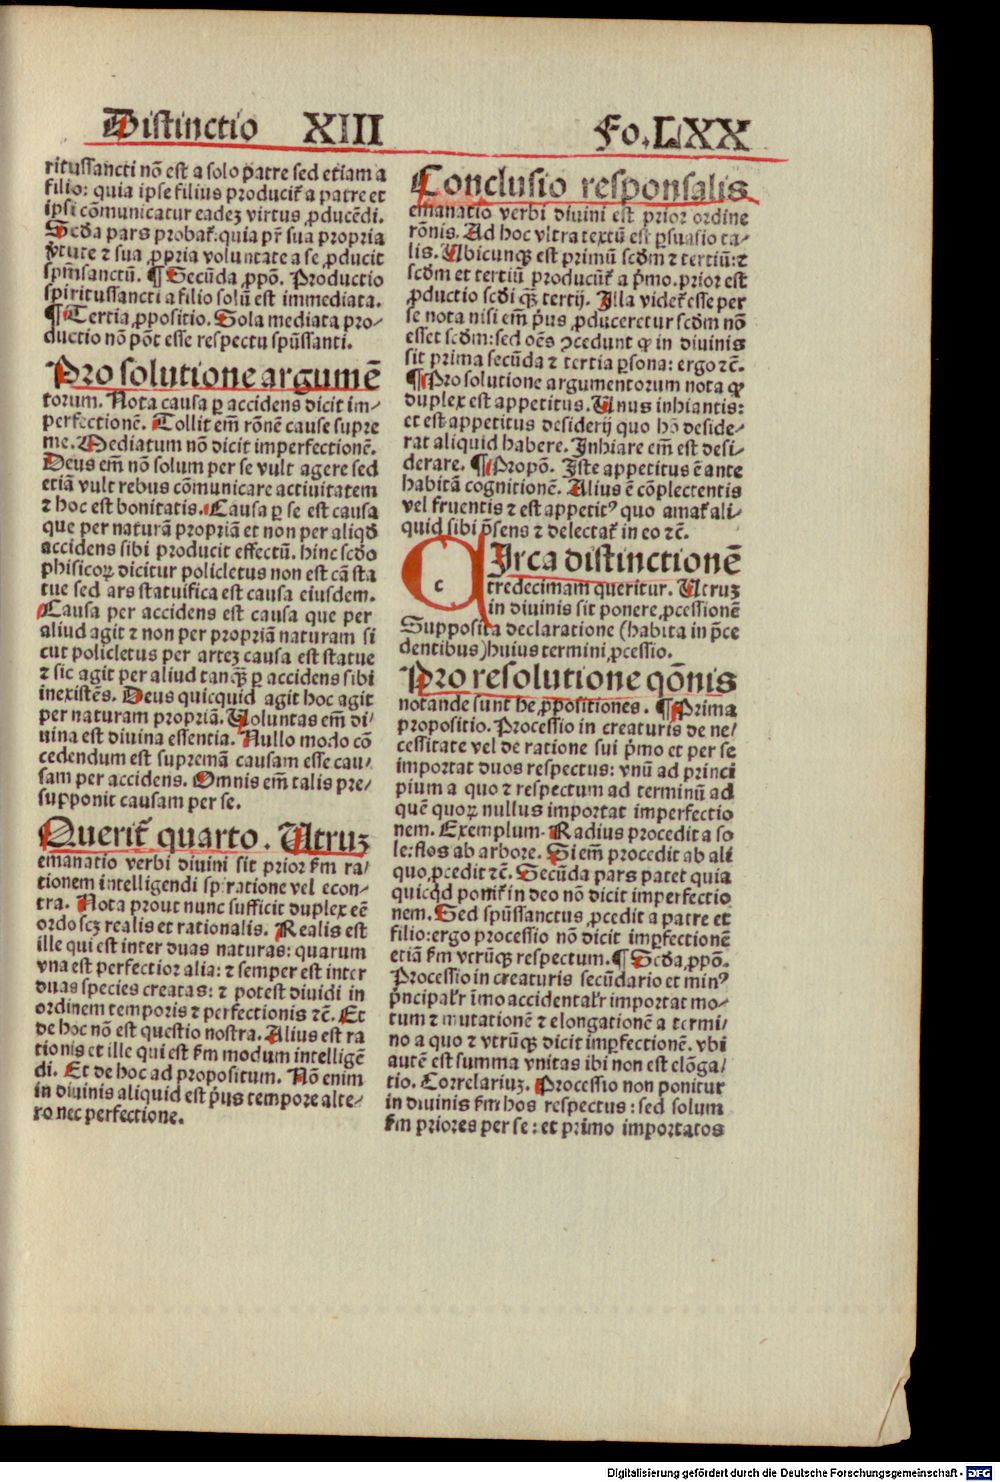 Distinctio XIII
Fo.LXX
ritussancti nō est a solo p̄atre sed etiam a
filio: quia ipse filius producit̄ a patre et
ipsi cōmunicatur eadeʒ virtus ꝓducēdi.
Scd̄a pars probat̄. quia pr̄ sua propria
v̄tute ⁊ sua ꝓpria voluntate a se ꝓducit
spm̄sanctū. ¶ Secūda ꝓpō. Productio
spiritussancti a filio solū est immediata.
¶ Tertia ꝓpositio. Sola mediata pro⸗
ductio nō pōt esse respectu spūssanti.
Pro solutione argumē
torum. Nota causa ꝑ accidens dicit im⸗
perfectionē. Tollit em̄ rōnē cause supre
me. Mediatum nō dicit imperfectionē.
Deus em̄ nō solum per se vult agere sed
etiā vult rebus cōmunicare actiuitatem
⁊ hoc est bonitatis. Causa ꝑ se est causa
que per naturā propriā et non per aliqd̄
accidens sibi producit effectū. hinc scd̄o
phisicoꝝ dicitur policletus non est cā sta
tue sed ars statuifica est causa eiusdem.
Causa per accidens est causa que per
aliud agit ⁊ non per propriā naturam si
cut policletus per arteʒ causa est statue
⁊ sic agit per aliud tanqꝫ ꝑ accidens sibi
inexistēs. Deus quicquid agit hoc agit
per naturam propriā. Voluntas em̄ di⸗
uina est diuina essentia. Nullo modo cō
cedendum est supremā causam esse cau⸗
sam per accidens. Omnis em̄ talis pre⸗
supponit causam per se.
Querit̄ quarto. Utruʒ
emanatio verbi diuini sit prior ẜm ra⸗
tionem intelligendi spiratione vel econ⸗
tra. Nota prout nunc sufficit duplex eē
ordo scʒ realis et rationalis. Realis est
ille qui est inter duas naturas: quarum
vna est perfectior alia: ⁊ semper est inter
duas species creatas: ⁊ potest diuidi in
ordinem temporis ⁊ perfectionis ⁊c̄. Et
de hoc nō est questio nostra. Alius est ra
tionis et ille qui est ẜm modum intelligē
di. Et de hoc ad propositum. Nō enim
in diuinis aliquid est p̄us tempore alte⸗
ro nec perfectione.
Conclusio responsalis
emanatio verbi diuini est prior ordine
rōnis. Ad hoc vltra textū est ꝑsuasio ta⸗
lis. Ubicunqꝫ est primū scd̄m ⁊ tertiū: ⁊
scd̄m et tertiū producūt̄ a p̄mo. prior est
ꝓductio scd̄i qꝫ̄ tertij. Illa videt̄ esse per
se nota nisi em̄ p̄us ꝓduceretur scd̄m nō
esset scd̄m: sed oēs ꝯcedunt ꝙ in diuinis
sit prima secūda ⁊ tertia ꝑsona: ergo ⁊c̄.
¶ Pro solutione argumentorum nota ꝙ
duplex est appetitus. Unus inhiantis:
et est appetitus desiderij quo hō deside⸗
rat aliquid habere. Inhiare em̄ est desi⸗
derare. ¶ Propō. Iste appetitus ē ante
habitā cognitionē. Alius ē cōplectentis
vel fruentis ⁊ est appetitꝰ quo amat̄ ali⸗
quid sibi p̄sens ⁊ delectat̄ in eo ⁊c̄.
c
Irca distinctionē
tredecimam queritur. Utruʒ
in diuinis sit ponere ꝓcessionē
Supposita declaratione (habita in p̄ce
dentibus) huius termini ꝓcessio.
Pro resolutione qōnis
notande sunt he ꝓpositiones. ¶ Prima
propositio. Processio in creaturis de ne⸗
cessitate vel de ratione sui p̄mo et per se
importat duos respectus: vnū ad princi
pium a quo ⁊ respectum ad terminū ad
quē quoꝝ nullus importat imperfectio
nem. Exemplum. Radius procedit a so
le: flos ab arbore. Si em̄ procedit ab ali
quo ꝓcedit ⁊c̄. Secūda pars patet quia
quicqd̄ ponit̄ in deo nō dicit imperfectio
nem. Sed spūssanctus ꝓcedit a patre et
filio: ergo processio nō dicit imꝑfectionē
etiā ẜm vtrūqꝫ respectum. ¶ Scd̄a ꝓpō.
Processio in creaturis secūdario et minꝰ
p̄ncipal̄r īmo accidental̄r importat mo⸗
tum ⁊ mutationē ⁊ elongationē a termi⸗
no a quo ⁊ vtrūqꝫ dicit imꝑfectionē. vbi
autē est summa vnitas ibi non est elōga⸗
tio. Correlariuʒ. Processio non ponitur
in diuinis ẜm hos respectus: sed solum
ẜm priores per se: et primo importatos
Digitalisierung gefördert durch die Deutsche Forschungsgemeinschaft - DFG